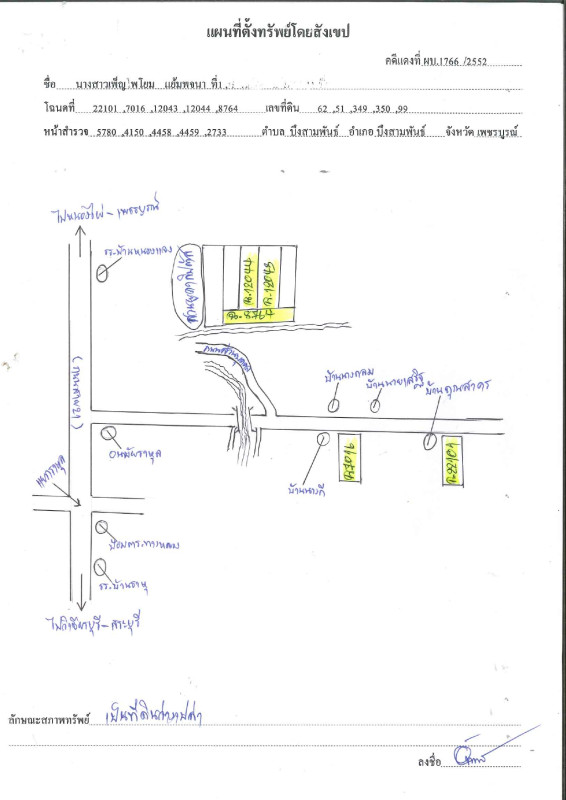 แผนที่ตั้งทรัพย์โดยสังเขป
คดีแดงที่ ผบ.1766 /2552
ชื่อ นางสาวเพ็ญไพโยม แย้มพจนา ที่1
โฉนดที่ 22101 ,7016 ,12043 ,12044 ,8764 เลขที่ดิน 62 ,51 ,349 ,350 ,99
หน้าสำรวจ 5780 ,4150 ,4458 ,4459 ,2733 ตำบล บึงสามพันธ์ อำเภอ บึงสามพันธ์ จังหวัด เพชรบูรณ์
ไปหนองไผ่ - เพชรบูรณ์
ฉ.12044
ฉ.12043
ฉ.8764
(ถนนสาย21)
บ้านนางถลม
บ้านนายเสริฐ
บ้านคุณสาคร
อนามัยราหุล
ฉ.7016
ฉ.22101
แยกราหุล
บ้านนางกี
ป้อมตร.ทางหลวง
รร.บ้านราหุ
ไปวิเชียรบุรี - สระบุรี
ลักษณะสภาพทรัพย์ เป็นที่ดินว่างเปล่า
ลงชื่อ